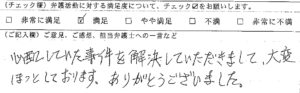 (チェック欄) 弁護活動に対する満足度について、チェック☑をお願いします。
□ 非常に満足 ☑ 満足 □ やや満足 □ 不満 □ 非常に不満
(ご記入欄) ご意見、ご感想、担当弁護士への一言など
心配していた事件を解決していただきまして、大変
ほっとしております。ありがとうございました。